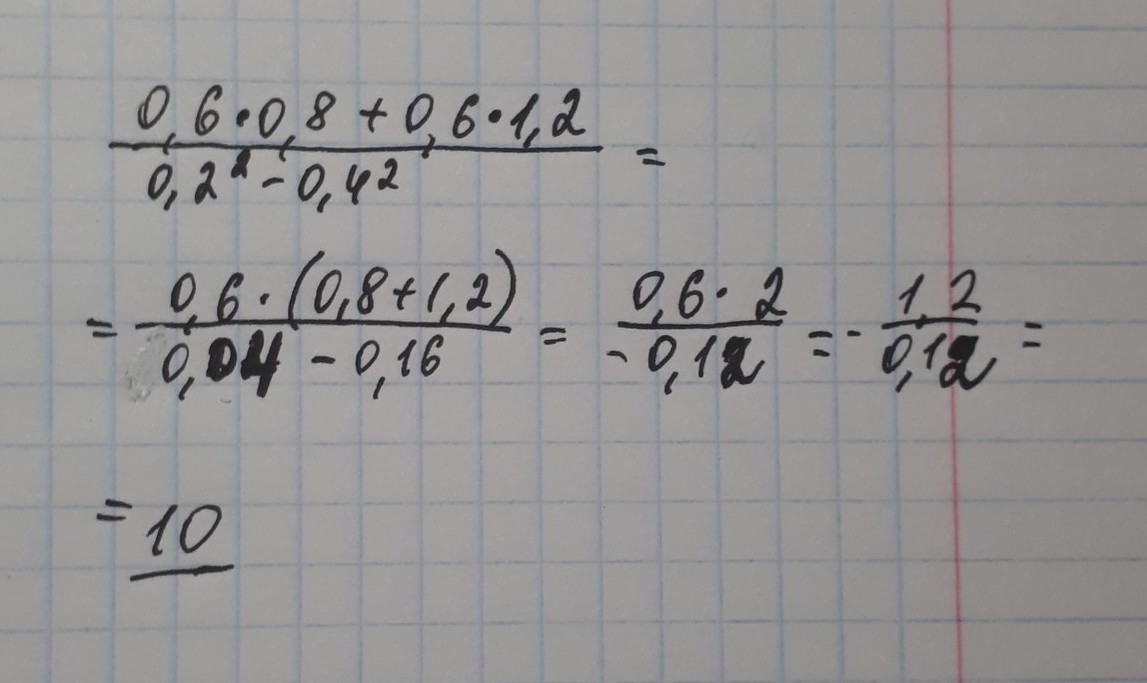 0,6·0,8 + 0,6·1,2
0,2² - 0,4² =
= 0,6·(0,8+1,2) / 0,04 - 0,16 = 0,6·2 / -0,12 = - 1,2 / 0,12 =
= 10